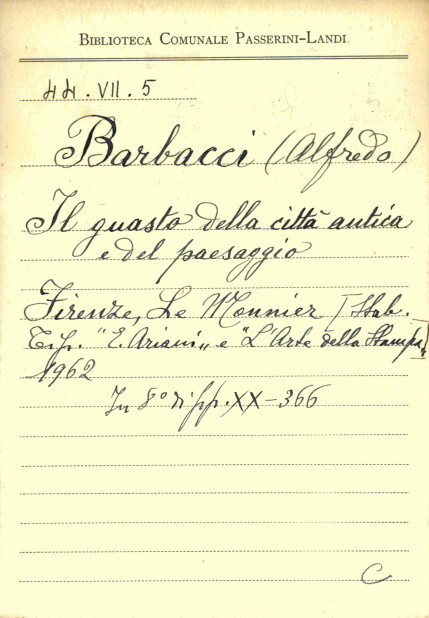 BIBLIOTECA COMUNALE PASSERINI-LANDI
44.VII.5
Barbacci (Alfredo)
Il guasto della città antica
e del paesaggio
Firenze, Le Monnier [Stab.
Tip. "E. Ariani„ e "L'Arte della Stampa„]
1962
In 8° di pp. XX-366
C